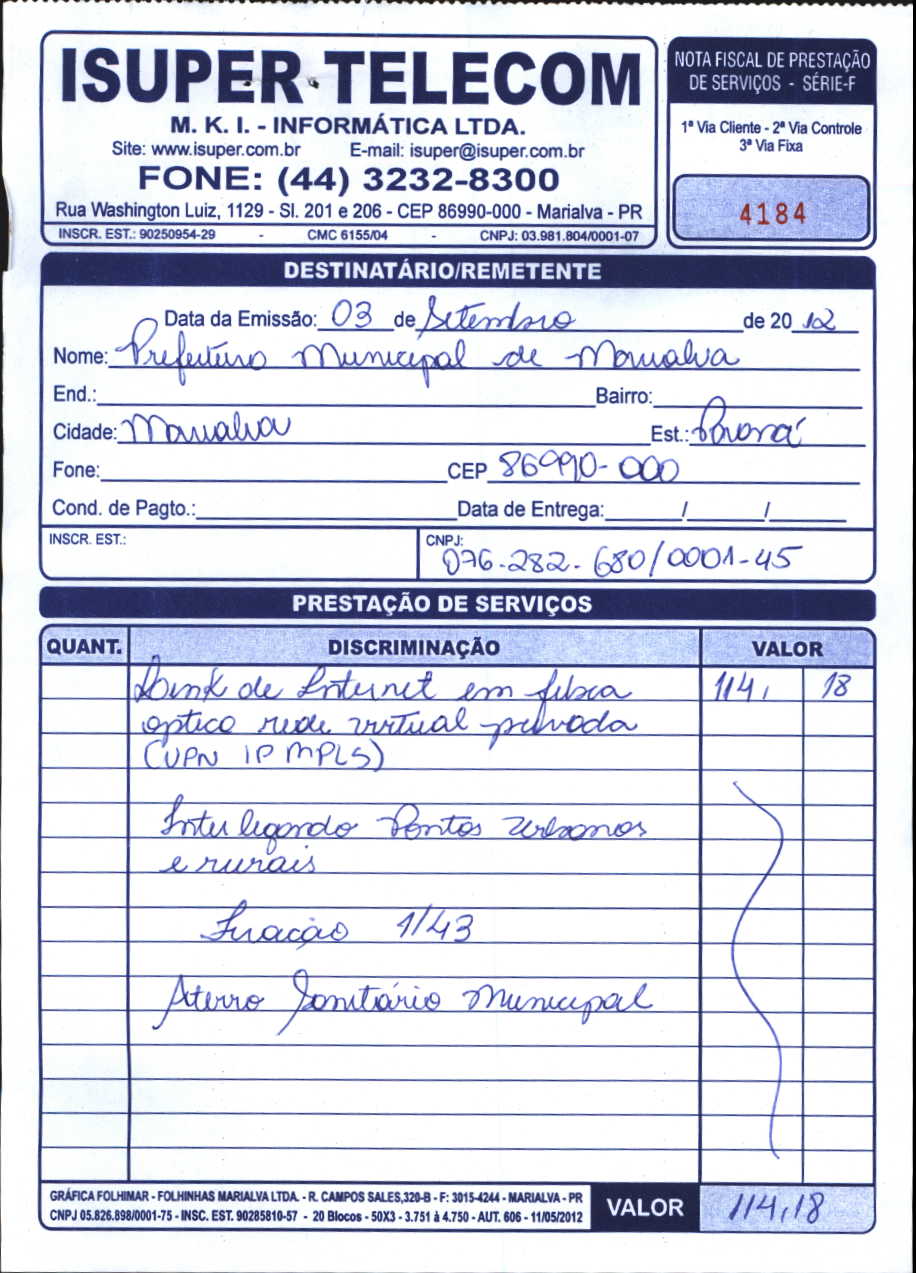 ISUPER TELECOM
M. K. I. - INFORMÁTICA LTDA.
Site: www.isuper.com.br E-mail: isuper@isuper.com.br
FONE: (44) 3232-8300
Rua Washington Luiz, 1129 - Sl. 201 e 206 - CEP 86990-000 - Marialva - PR
INSCR. EST.: 90250954-29 - CMC 6155/04 - CNPJ: 03.981.804/0001-07
NOTA FISCAL DE PRESTAÇÃO
DE SERVIÇOS - SÉRIE-F
1ª Via Cliente - 2ª Via Controle
3ª Via Fixa
4184
DESTINATÁRIO/REMETENTE
Data da Emissão: 03 de Setembro de 20 12
Nome: Prefeitura Municipal de Marialva
End.: Bairro:
Cidade: Marialva Est.: Paraná
Fone: CEP 86990-000
Cond. de Pagto.: Data de Entrega: / /
INSCR. EST.: CNPJ: 076.282.680/0001-45
PRESTAÇÃO DE SERVIÇOS
QUANT. DISCRIMINAÇÃO VALOR
Link de Internet em fibra 114, 18
optica rede virtual privada
(VPN IP MPLS)
Interligando Pontos urbanos
e rurais
Fração 1/43
Aterro Sanitário Municipal
GRÁFICA FOLHIMAR - FOLHINHAS MARIALVA LTDA. - R. CAMPOS SALES,320-B - F: 3015-4244 - MARIALVA - PR
CNPJ 05.826.898/0001-75 - INSC. EST. 90285810-57 - 20 Blocos - 50X3 - 3.751 à 4.750 - AUT. 606 - 11/05/2012
VALOR 114,18